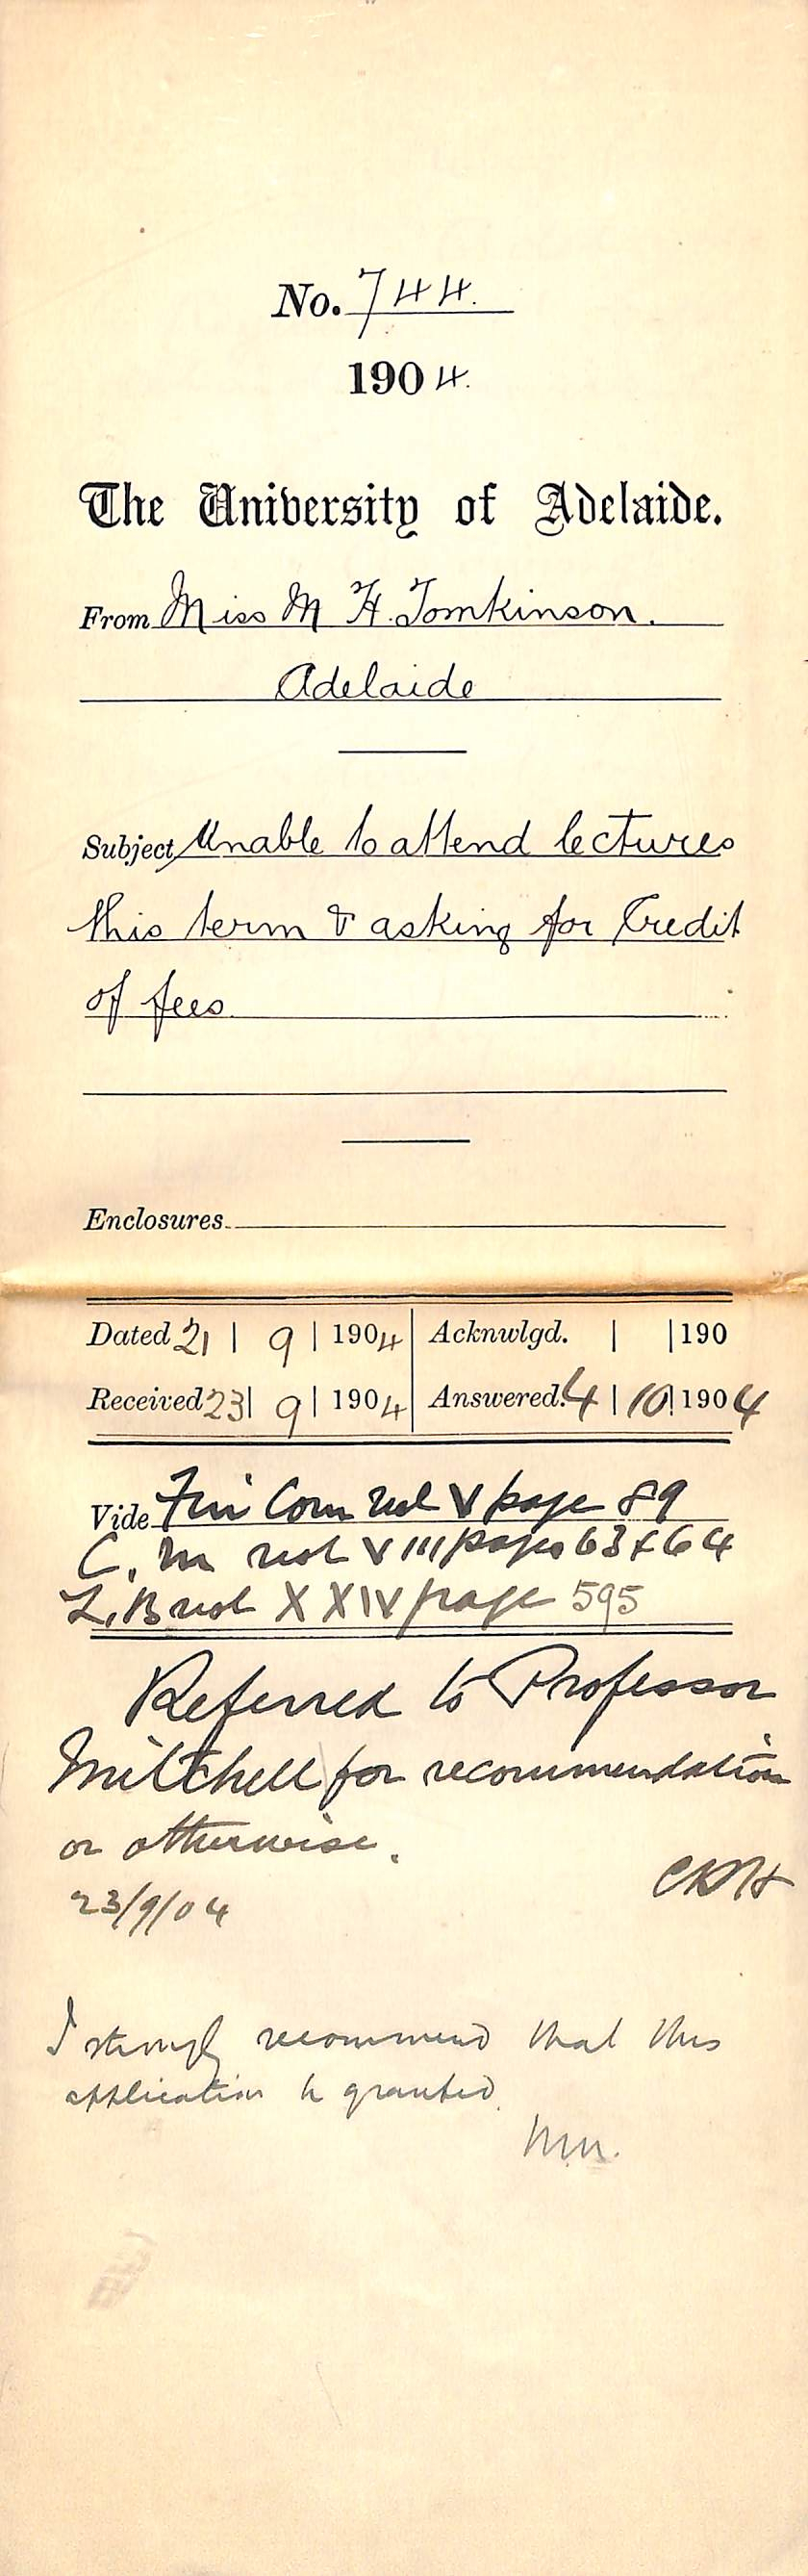 No. 744.
1904.
The University of Adelaide.
From Miss M H. Tomkinson.
Adelaide
Subject Unable to attend lectures
this term & asking for Credit
of fees
Enclosures
Dated 21 | 9 | 1904 Acknwlgd. | | 190
Received 23 | 9 | 1904 Answered. 4 | 10 | 1904
Vide Fin Com vol V page 89
C. M vol VIII pages 63 & 64
L. B vol XXIV page 595
Referred to Professor
Mitchell for recommendation
or otherwise.
CRH
23/9/04
I strongly recommend that this
application be granted.